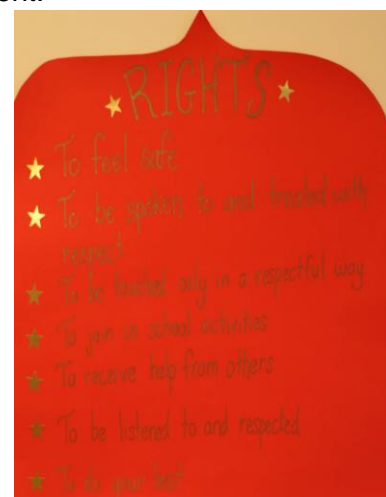 ent.
RIGHTS
To feel safe
To be spoken to and treated with
respect
To be touched only in a respectful way
To join in school activities
To receive help from others
To be listened to and respected
To do your best